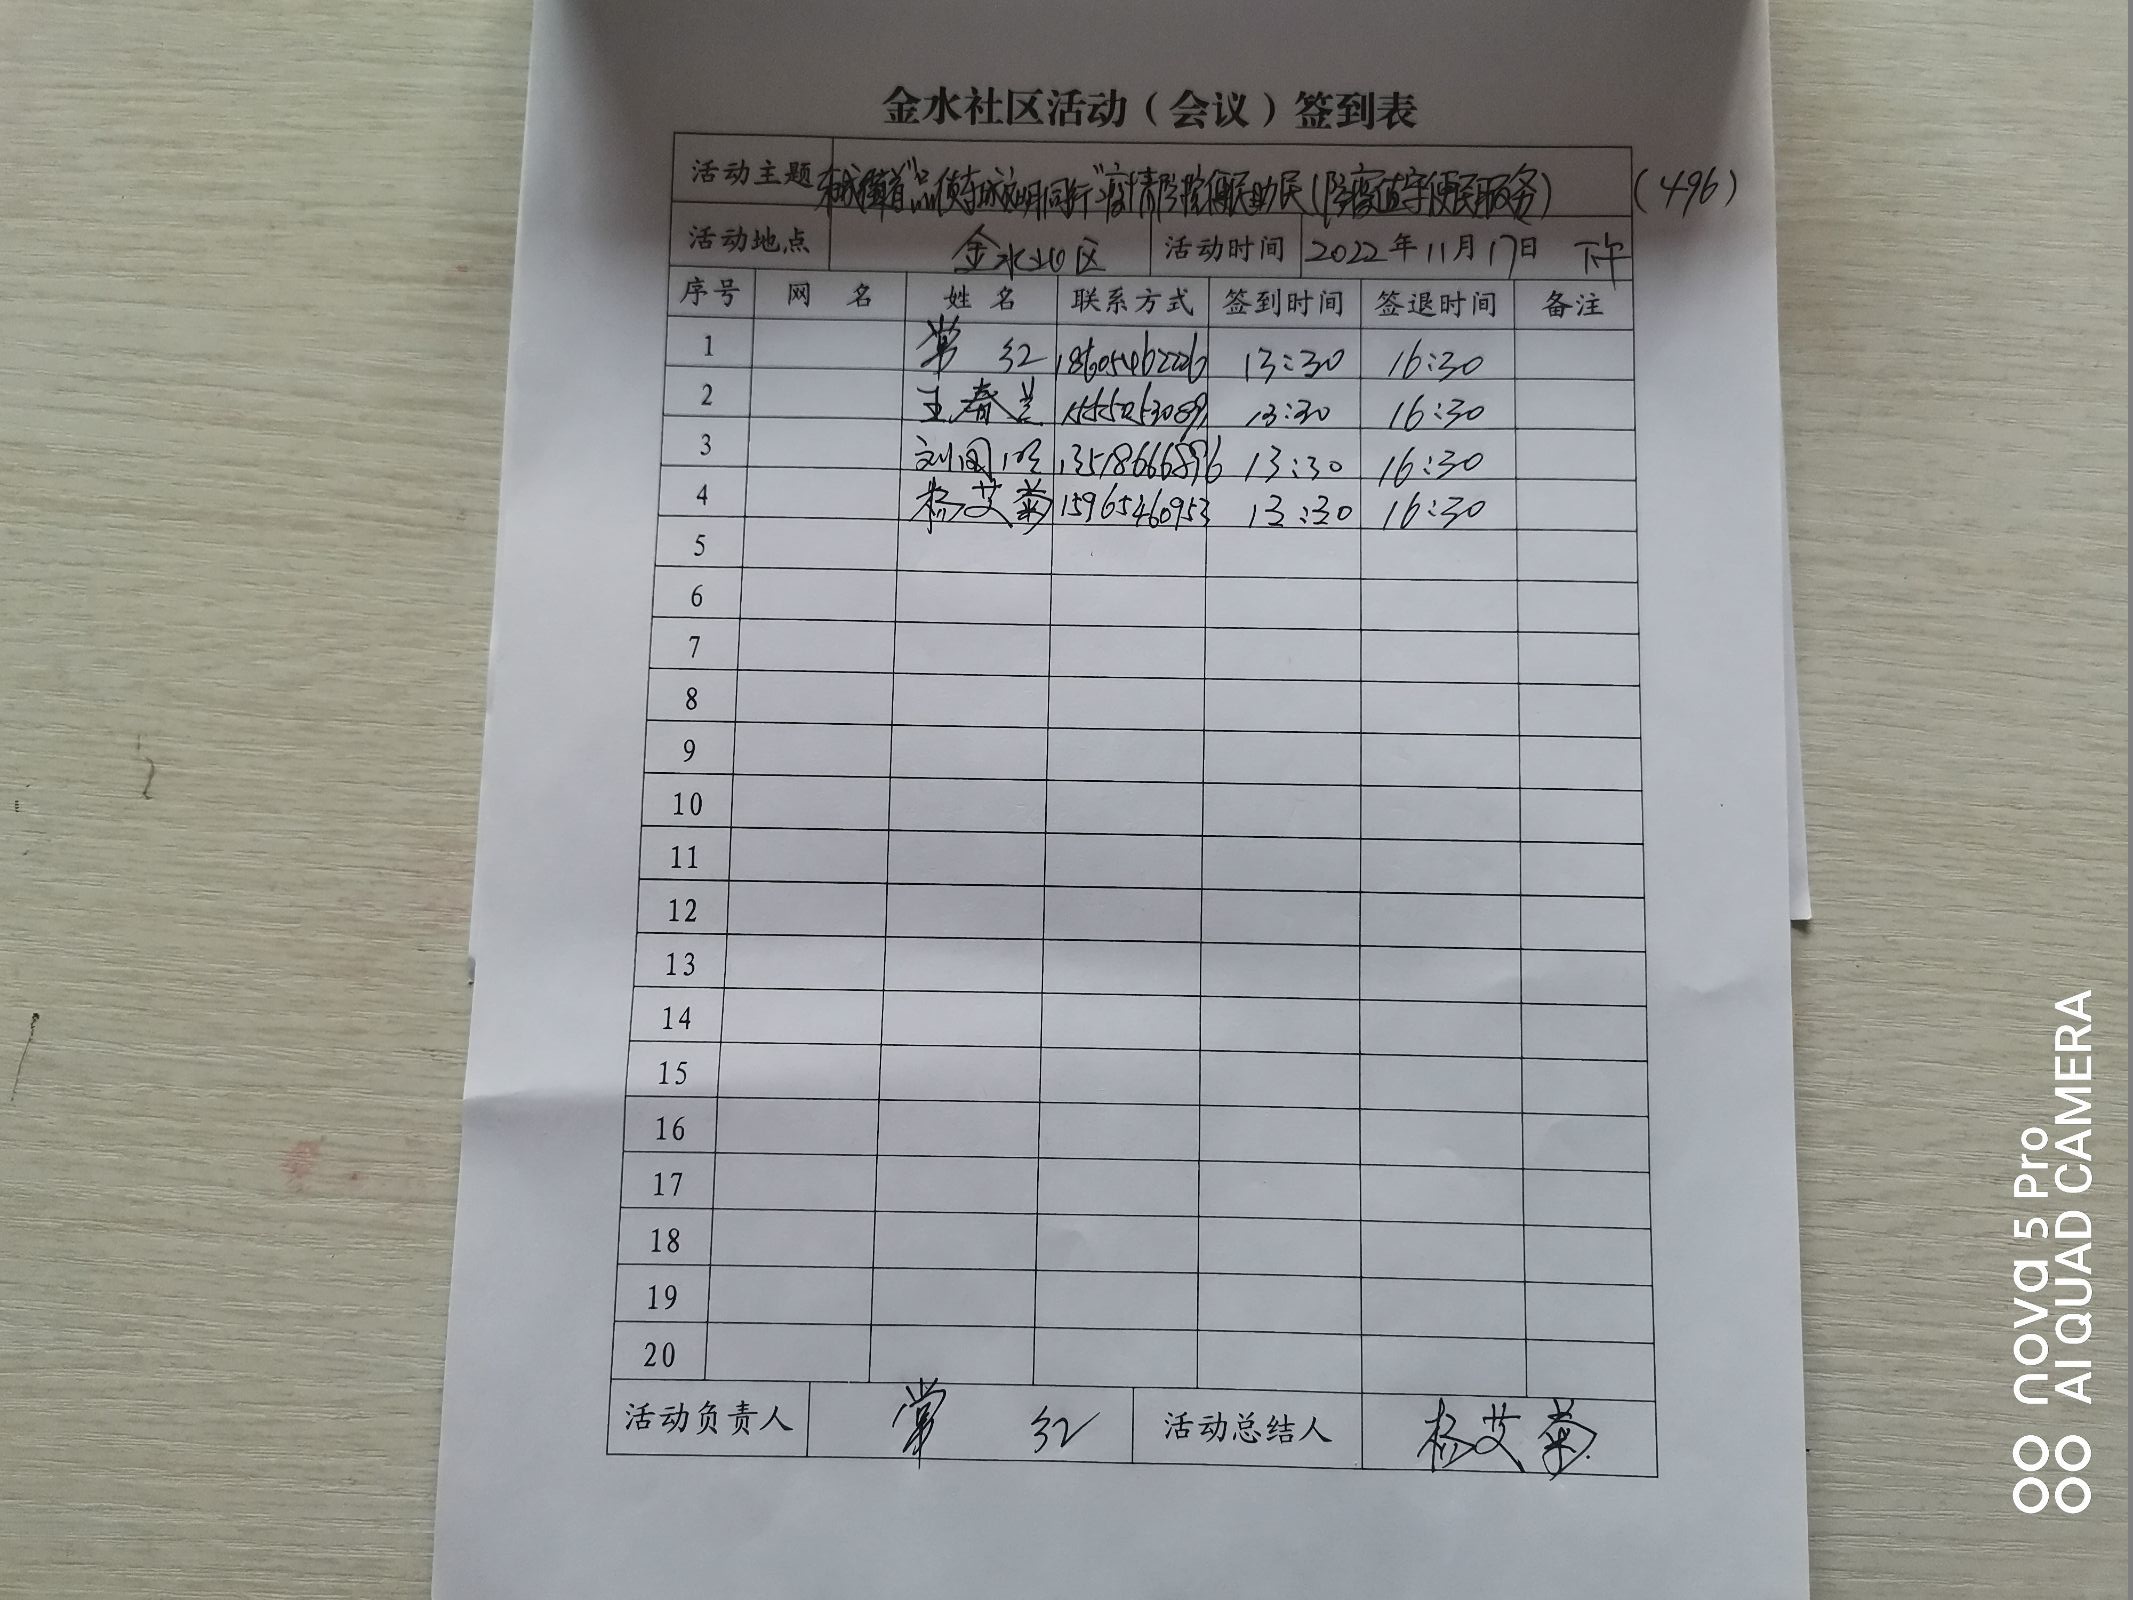 金水社区活动（会议）签到表
活动主题 东城街道“品质东城文明同行”疫情防控便民助民（防疫值守便民服务） （496）
活动地点 金水社区 活动时间 2022年11月17日 下午
序号 网 名 姓 名 联系方式 签到时间 签退时间 备注
1 常 红 18605462226 13:30 16:30
2 王春兰 13:30 16:30
3 刘国明 13518666896 13:30 16:30
4 杨艾菊 15965460953 13:30 16:30
5
6
7
8
9
10
11
12
13
14
15
16
17
18
19
20
活动负责人 常 红 活动总结人 杨艾菊
nova 5 Pro
AI QUAD CAMERA